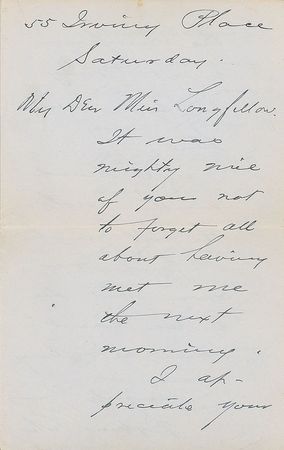 55 Irving Place
Saturday.
My Dear Miss Longfellow.
It was
mighty nice
of you not
to forget all
about having
met me
the next
morning.
I ap-
preciate your